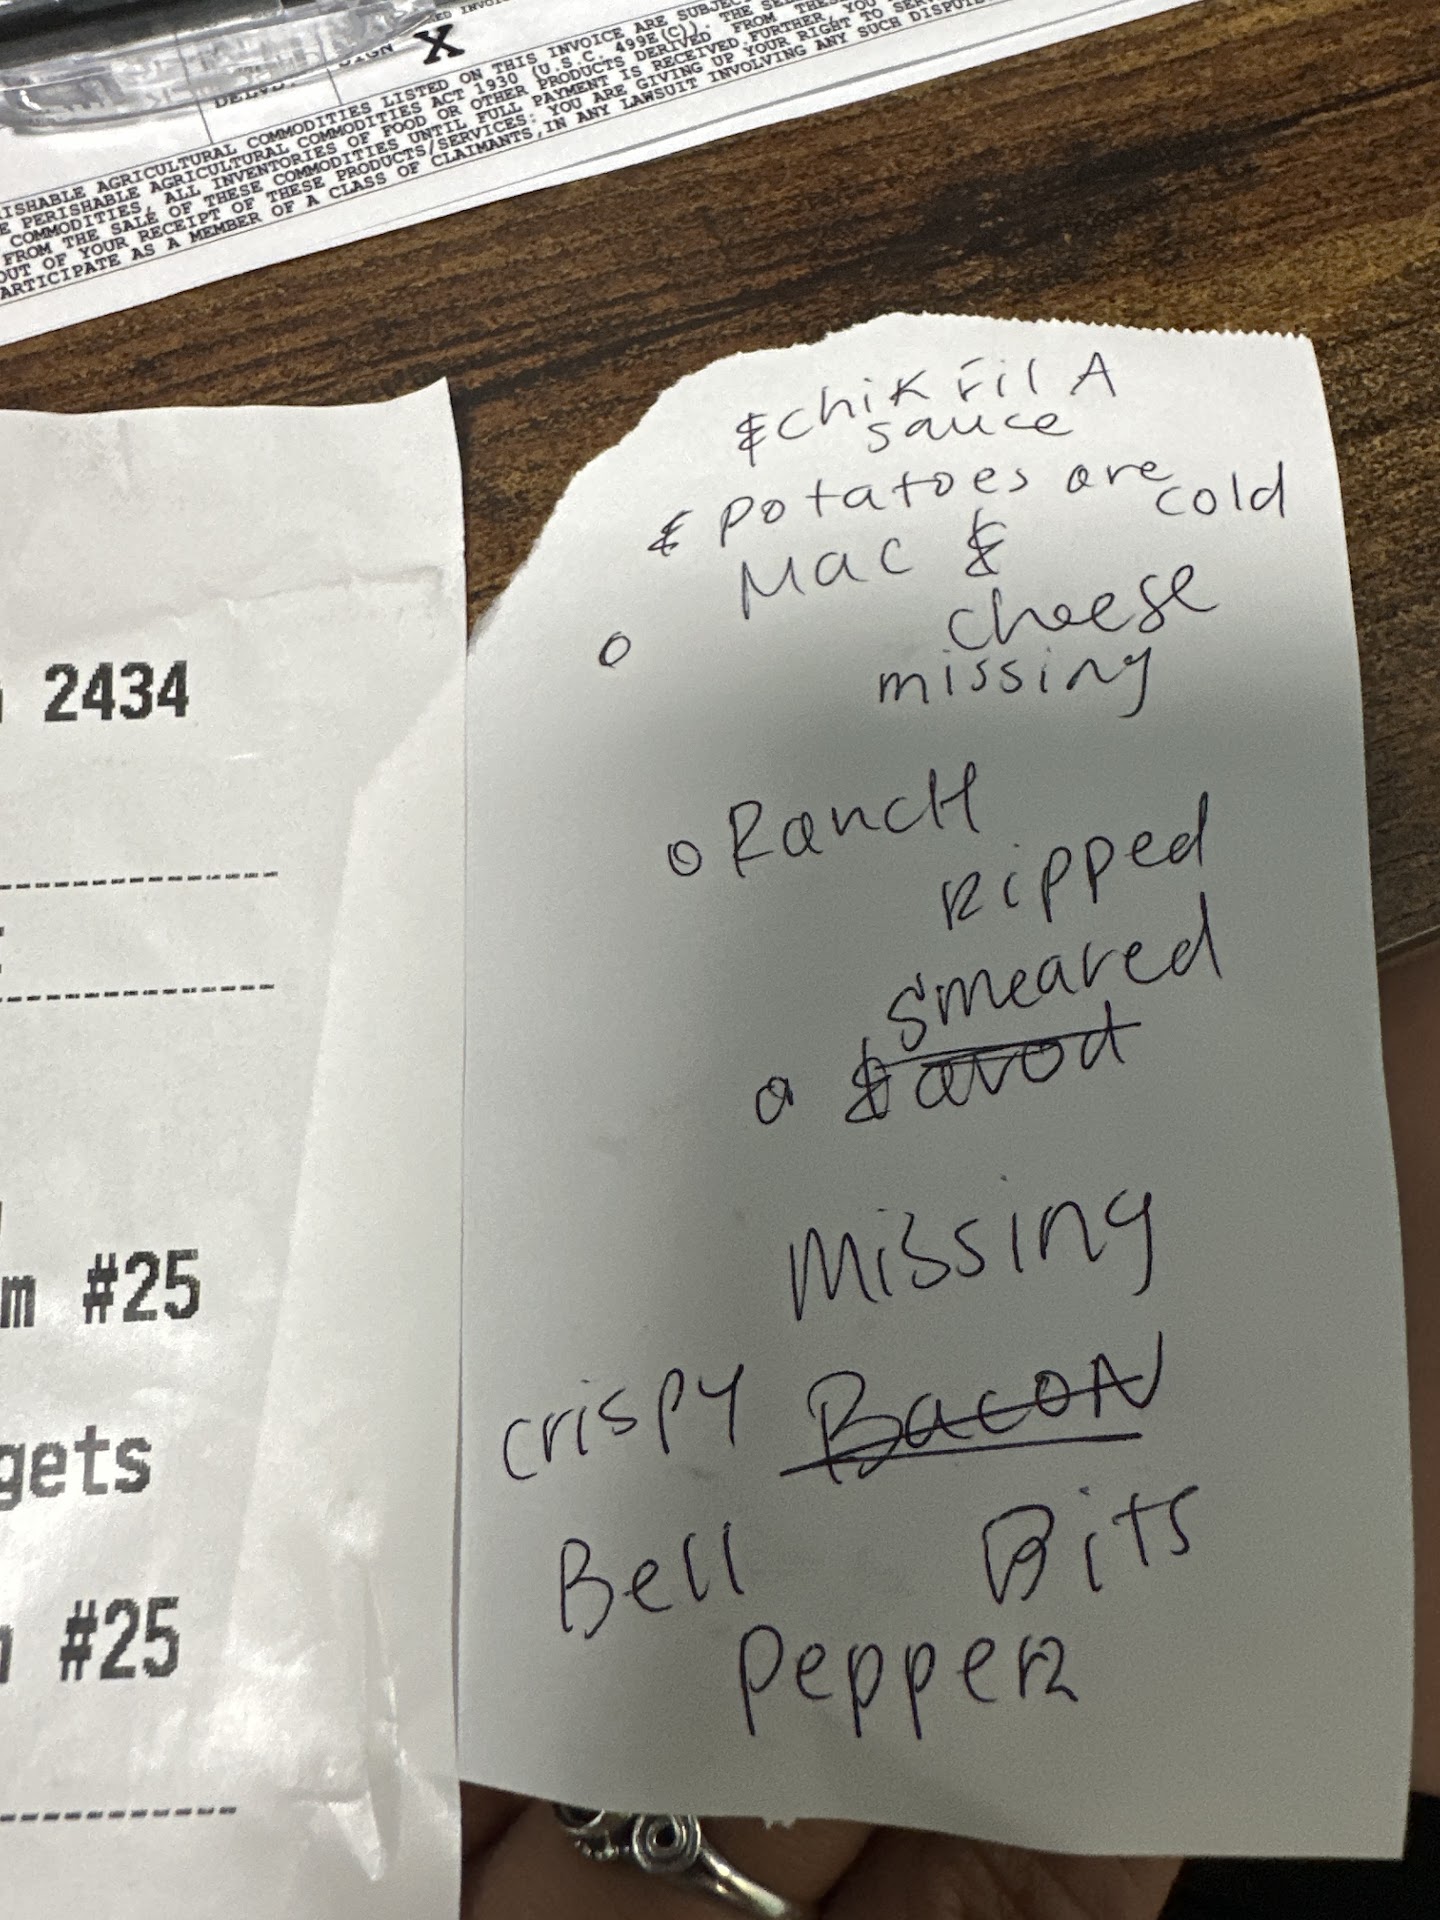 DELVD.
SIGN X
ISHABLE AGRICULTURAL COMMODITIES LISTED ON THIS INVOICE ARE SUBJEC
E PERISHABLE AGRICULTURAL COMMODITIES ACT 1930 (U.S.C. 499E(C)). THE SE
COMMODITIES, ALL INVENTORIES OF FOOD OR OTHER PRODUCTS DERIVED FROM THES
FROM THE SALE OF THESE COMMODITIES UNTIL FULL PAYMENT IS RECEIVED.FURTHER, YOU
OUT OF YOUR RECEIPT OF THESE PRODUCTS/SERVICES: YOU ARE GIVING UP YOUR RIGHT TO SERV
ARTICIPATE AS A MEMBER OF A CLASS OF CLAIMANTS,IN ANY LAWSUIT INVOLVING ANY SUCH DISPU
2434
m #25
gets
#25
& chik Fil A
sauce
& potatoes are
cold
Mac &
cheese
missing
o Ranch
Ripped
smeared
Missing
crispy Bacon
Bell Bits
Pepper